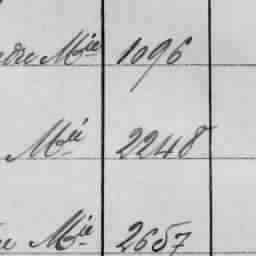 Mie 1096
Mie 2248
Mie 2657